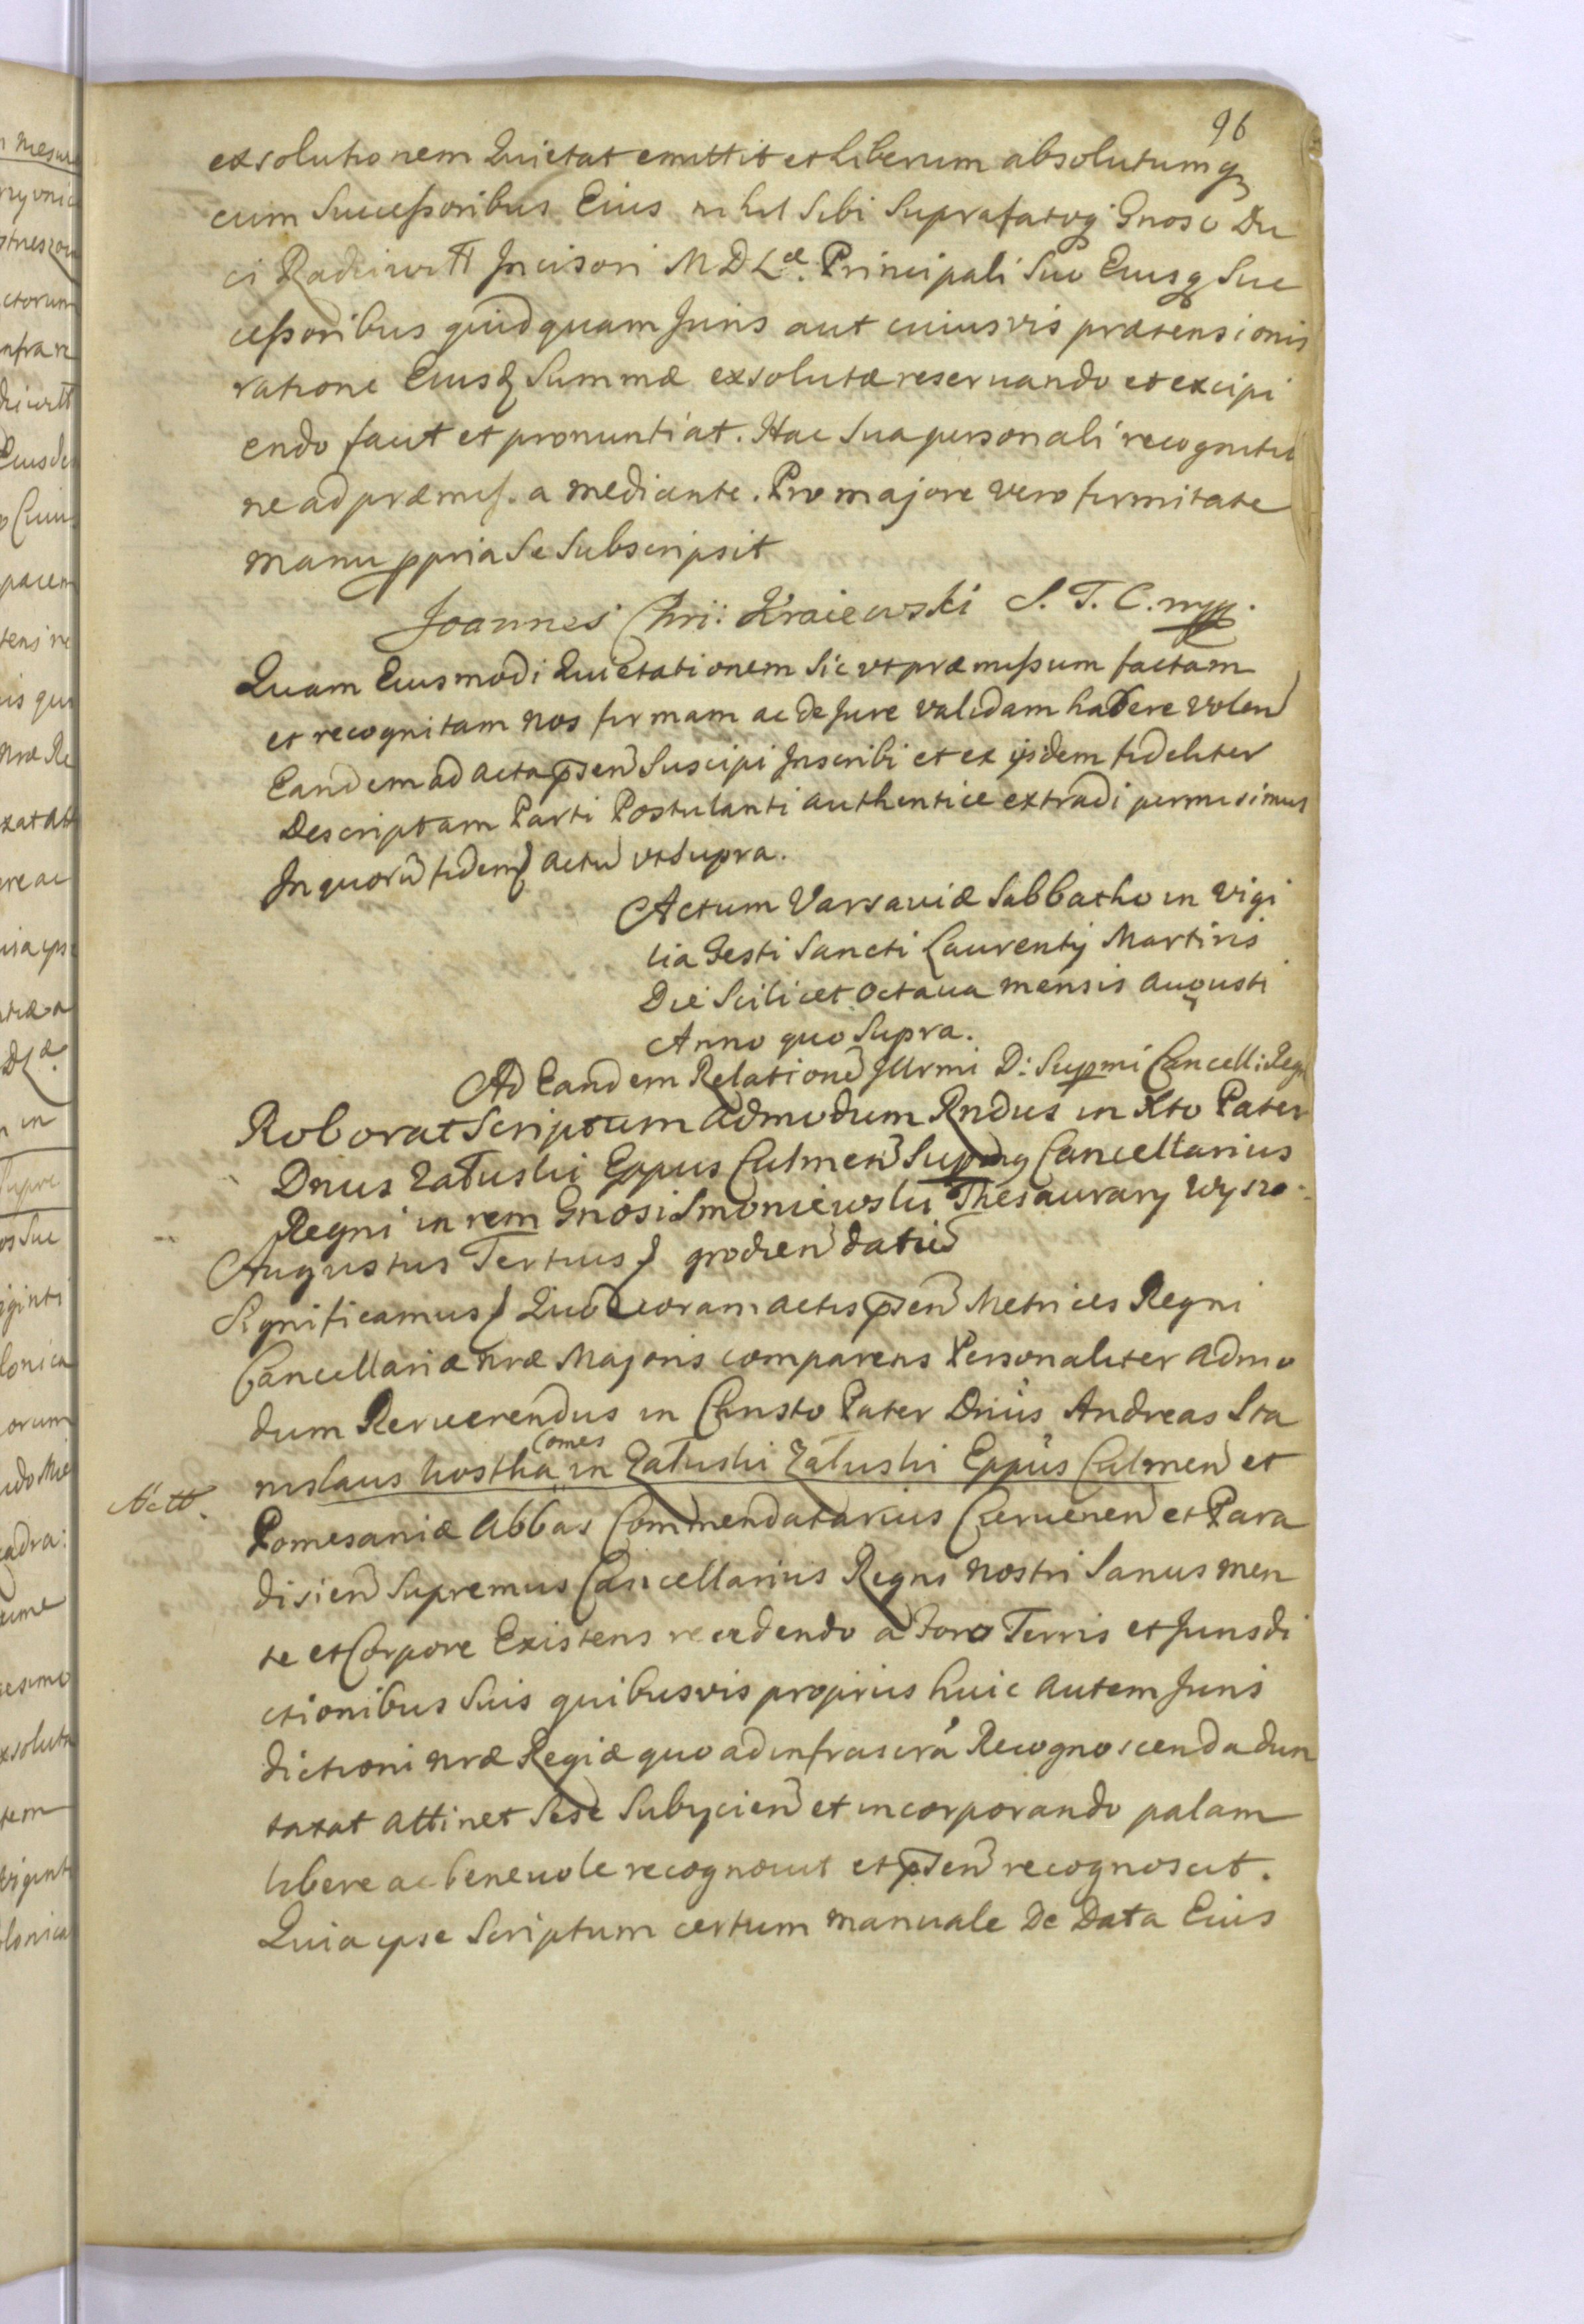 96
exsolutionem Quietat emittit et liberum absolutumq
cum Successoribus Eius nihil Sibi Suprafatoq Gnoso Du
ci Radziwiłł Incisori M D L æ. Principali Suo Eiusq Suc
cessoribus quidquam Juris aut cuiusvis prætensionis
ratione Eiusd Summæ exsolutæ reservando et excipi
endo facit et pronuntiat. Hac Sua personali recognitio
ne ad præmiss. a mediante. Pro majore vero firmitate
manu ppria Se Subscripsit
Joannes Chri: Kraiewski S. T. C. mpp.
Quam Eiusmodi Quietationem Sic ut præmissum factam
et recognitam nos firmam ac de Jure validam habere volen
Eandem ad acta psen Suscipi Inscribi et ex ijsdem fideliter
Descriptam Parti Postulanti authentice extradi permisimus
In quorū fidem actū ut Supra.
Actum Varsaviæ Sabbatho in vigi
lia Festi Sancti Laurentij Martiris
Die Scilicet Octava mensis Augusti
Anno quo Supra.
Ad Eandem Relatione Illrmi D: Supmi Cancell: Regn
Roborat Scriptum admodum Rndus in Xto Pater
Dnus Załuski Eppus Culmen Supmq Cancellarius
Regni in rem Gnosi Smoniewski Thesaurary Wyszo
Augustus Tertius grodien datū
Significamus Quod coram actis psen Metrices Regni
Cancellariæ nræ Majoris comparens Personaliter admo
dum Reverendus in Christo Pater Dnus Andreas Sta
Comes
nislaus Kostka in Załuski Załuski Eppus Culmen et
Nott.
Pomesaniæ Abbas Commendatarius Czerwenen et Para
disien Supremus Cancellarius Regni nostri Sanus men
te et Corpore Existens recedendo a Foro Terris et Jurisdi
ctionibus Suis quibusvis proprius huic autem Juris
dictioni nræ Regiæ quo ad infrascra Recognoscenda dun
taxat attinet Sese Subijcien et incorporando palam
libere ac benevole recognovit et psen recognoscit.
Quia ipse Scriptum certum manuale De Data Eius